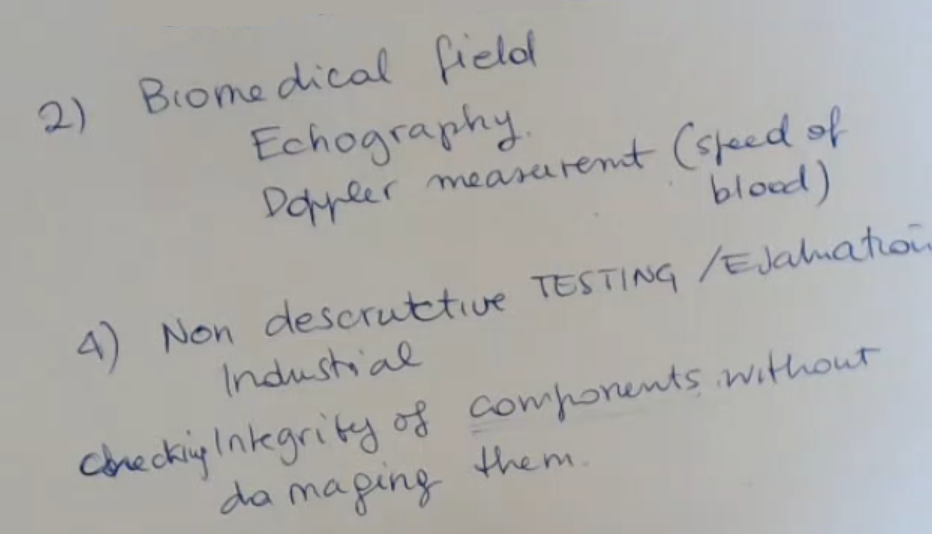 2) Biomedical field
Echography.
Doppler measuremt (speed of
blood)
4) Non descruttive TESTING / Evaluation
Industrial
checking Integrity of components without
damaging them.